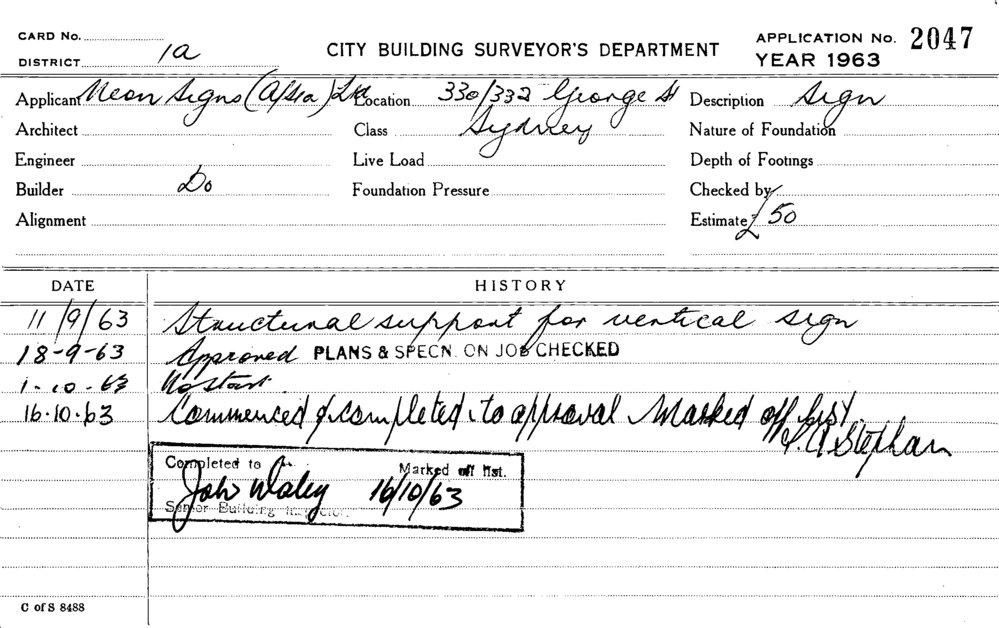 CARD No.
DISTRICT 1a
CITY BUILDING SURVEYOR'S DEPARTMENT
APPLICATION No. 2047
YEAR 1963
Applicant Neon Signs (A/sia) Ltd Location 330/332 George St Description Sign
Architect Class Sydney Nature of Foundation
Engineer Live Load Depth of Footings
Builder Do Foundation Pressure Checked by
Alignment Estimate £50
DATE HISTORY
11/9/63 Structural support for vertical sign
18-9-63 Approved PLANS & SPECN. ON JOB CHECKED
1-10-63 No start.
16.10.63 Commenced & completed to approval Marked off list.
Stephan
Completed to Marked off list.
16/10/63
Senior Building Inspector.
C of S 8488